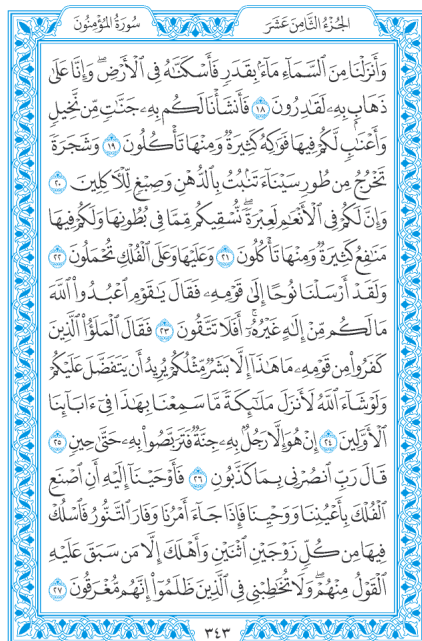 الجُزْءُ الثَّامِنَ عَشَرَ
سُورَةُ المُؤْمِنُونَ
وَأَنزَلْنَا مِنَ ٱلسَّمَآءِ مَآءَۢ بِقَدَرٖ فَأَسْكَنَّٰهُ فِي ٱلْأَرْضِۖ وَإِنَّا عَلَىٰ
ذَهَابِۭ بِهِۦ لَقَٰدِرُونَ ١٨ فَأَنشَأْنَا لَكُم بِهِۦ جَنَّٰتٖ مِّن نَّخِيلٖ
وَأَعْنَٰبٖ لَّكُمْ فِيهَا فَوَٰكِهُ كَثِيرَةٞ وَمِنْهَا تَأْكُلُونَ ١٩ وَشَجَرَةٗ
تَخْرُجُ مِن طُورِ سَيْنَآءَ تَنۢبُتُ بِٱلدُّهْنِ وَصِبْغٖ لِّلْأٓكِلِينَ ٢٠
وَإِنَّ لَكُمْ فِي ٱلْأَنْعَٰمِ لَعِبْرَةٗۖ نُّسْقِيكُم مِّمَّا فِي بُطُونِهَا وَلَكُمْ فِيهَا
مَنَٰفِعُ كَثِيرَةٞ وَمِنْهَا تَأْكُلُونَ ٢١ وَعَلَيْهَا وَعَلَى ٱلْفُلْكِ تُحْمَلُونَ ٢٢
وَلَقَدْ أَرْسَلْنَا نُوحًا إِلَىٰ قَوْمِهِۦ فَقَالَ يَٰقَوْمِ ٱعْبُدُوا۟ ٱللَّهَ
مَا لَكُم مِّنْ إِلَٰهٍ غَيْرُهُۥٓۚ أَفَلَا تَتَّقُونَ ٢٣ فَقَالَ ٱلْمَلَؤُا۟ ٱلَّذِينَ
كَفَرُوا۟ مِن قَوْمِهِۦ مَا هَٰذَآ إِلَّا بَشَرٞ مِّثْلُكُمْ يُرِيدُ أَن يَتَفَضَّلَ عَلَيْكُمْ
وَلَوْ شَآءَ ٱللَّهُ لَأَنزَلَ مَلَٰٓئِكَةٗ مَّا سَمِعْنَا بِهَٰذَا فِيٓ ءَابَآئِنَا
ٱلْأَوَّلِينَ ٢٤ إِنْ هُوَ إِلَّا رَجُلُۢ بِهِۦ جِنَّةٞ فَتَرَبَّصُوا۟ بِهِۦ حَتَّىٰ حِينٖ ٢٥
قَالَ رَبِّ ٱنصُرْنِي بِمَا كَذَّبُونِ ٢٦ فَأَوْحَيْنَآ إِلَيْهِ أَنِ ٱصْنَعِ
ٱلْفُلْكَ بِأَعْيُنِنَا وَوَحْيِنَا فَإِذَا جَآءَ أَمْرُنَا وَفَارَ ٱلتَّنُّورُ فَٱسْلُكْ
فِيهَا مِن كُلّٖ زَوْجَيْنِ ٱثْنَيْنِ وَأَهْلَكَ إِلَّا مَن سَبَقَ عَلَيْهِ
ٱلْقَوْلُ مِنْهُمْۖ وَلَا تُخَٰطِبْنِي فِي ٱلَّذِينَ ظَلَمُوٓا۟ إِنَّهُم مُّغْرَقُونَ ٢٧
٣٤٣